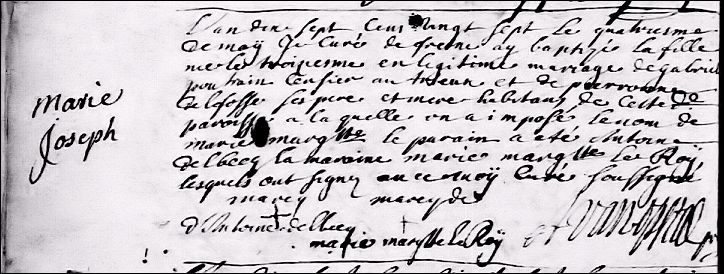 Marie
Joseph
L'an dix sept cent vingt sept le quatriesme
de may Je curé de fresne ay baptizé la fille
née le troiziesme en legitime mariage de gabriel
poutrain censier au et de pierronne
Calosse ses pere et mere habitans de cette de
paroisse a laquelle on a imposé le nom de
marie margtte le parain a été Antoine
delbecq la maraine marie margtte le Roÿ
lesquels ont signez avec moÿ curé soussigné
marcq marcq de
d'Antoine delbecq
marie margtte le Roÿ